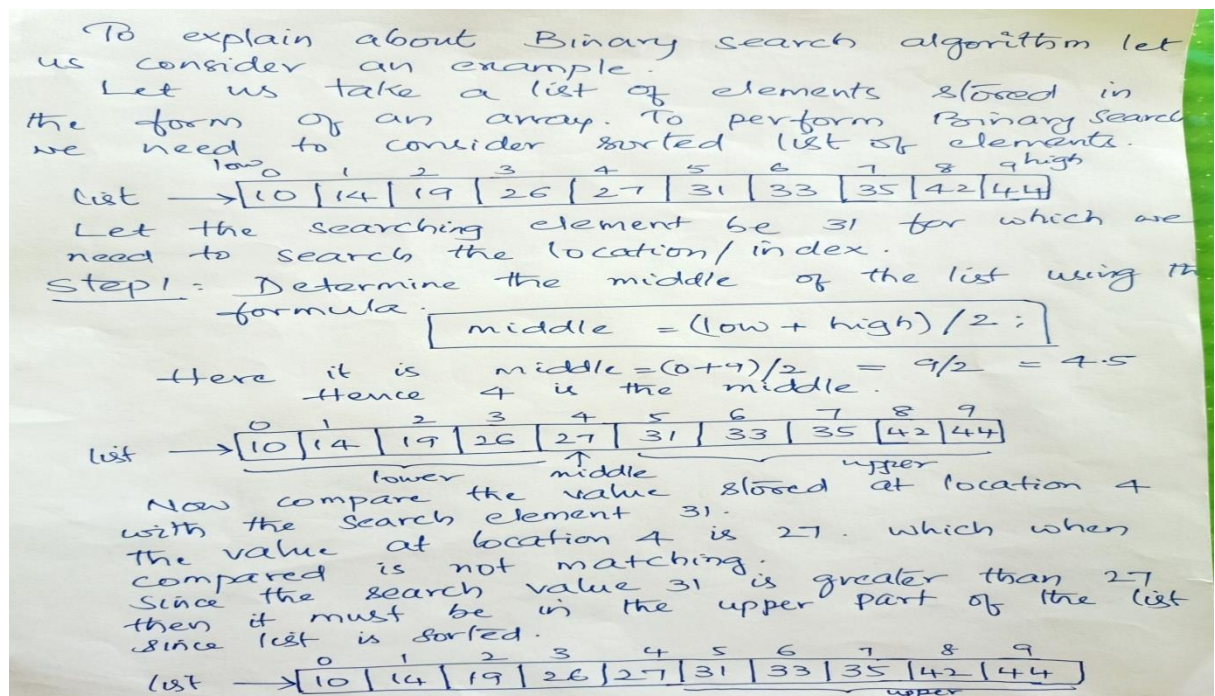 To explain about Binary search algorithm let
us consider an example.
Let us take a list of elements stored in
the form of an array. To perform Binary Search
we need to consider sorted list of elements.
low 0 1 2 3 4 5 6 7 8 9 high
list → 10 14 19 26 27 31 33 35 42 44
Let the searching element be 31 for which we
need to search the location/index.
Step1: Determine the middle of the list using th
formula.
middle = (low + high)/2;
Here it is middle = (0+9)/2 = 9/2 = 4.5
Hence 4 is the middle.
0 1 2 3 4 5 6 7 8 9
list → 10 14 19 26 27 31 33 35 42 44
lower middle upper
Now compare the value stored at location 4
with the search element 31.
The value at location 4 is 27. which when
compared is not matching.
Since the search value 31 is greater than 27
then it must be in the upper part of the list
since list is sorted.
0 1 2 3 4 5 6 7 8 9
list → 10 14 19 26 27 31 33 35 42 44
upper